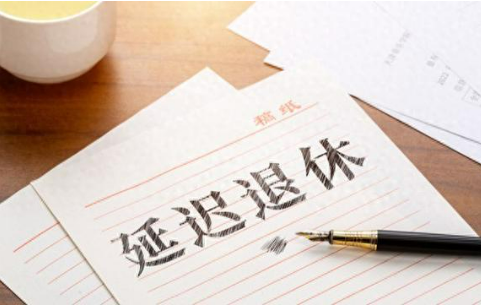 稿纸
延迟退休